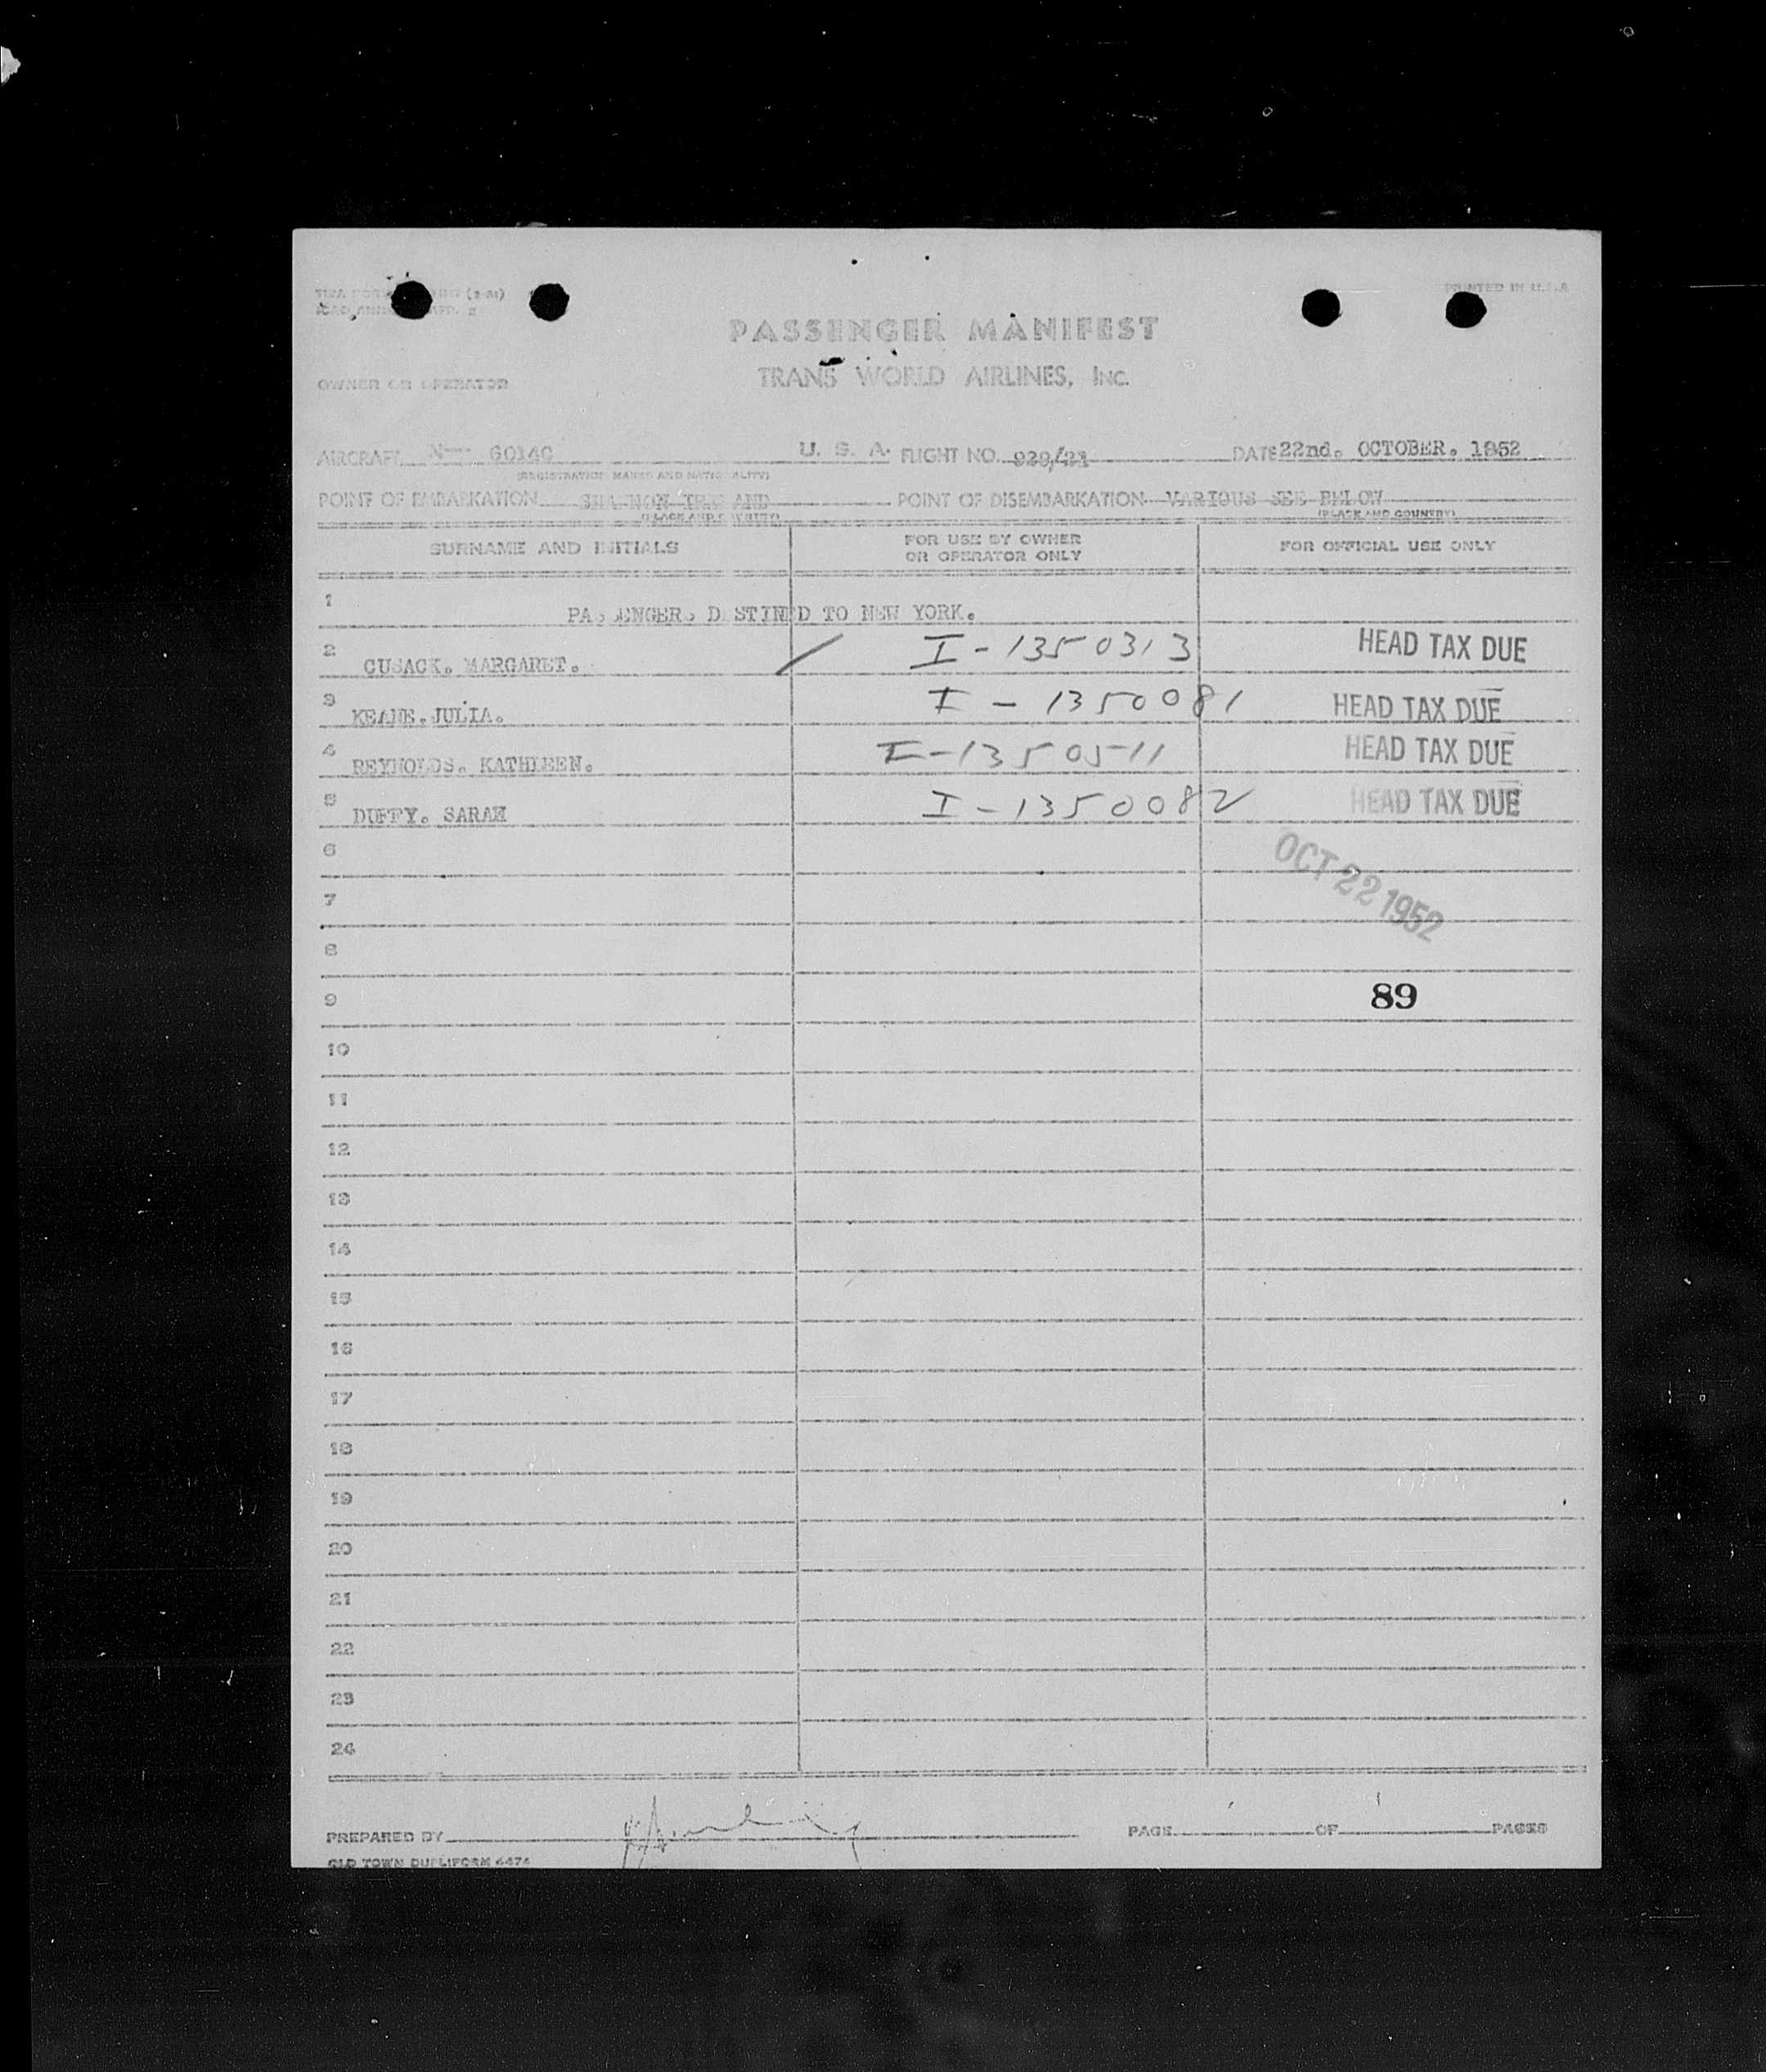 PRINTED IN U.S.A
PASSENGER MANIFEST
TRANS WORLD AIRLINES, INC.
OWNER OR OPERATOR
AIRCRAFT N- 6014C U. S. A. FLIGHT NO. 929/21 DATE 22nd. OCTOBER. 1952
(REGISTRATION MARKS AND NATIONALITY)
POINT OF EMBARKATION SHANNON IRELAND POINT OF DISEMBARKATION VARIOUS SEE BELOW
(PLACE AND COUNTRY) (PLACE AND COUNTRY)
SURNAME AND INITIALS FOR USE BY OWNER OR OPERATOR ONLY FOR OFFICIAL USE ONLY
1 PASSENGERS DESTINED TO NEW YORK.
2 CUSACK. MARGARET. / I-1350313 HEAD TAX DUE
3 KEANE. JULIA. I-1350081 HEAD TAX DUE
4 REYNOLDS. KATHLEEN. I-1350511 HEAD TAX DUE
5 DUFFY. SARAH I-1350082 HEAD TAX DUE
6
OCT 22 1952
7
8
9 89
10
11
12
13
14
15
16
17
18
19
20
21
22
23
24
PREPARED BY PAGE 1 OF 1 PAGES
OLD TOWN DUPLIFORM 4474